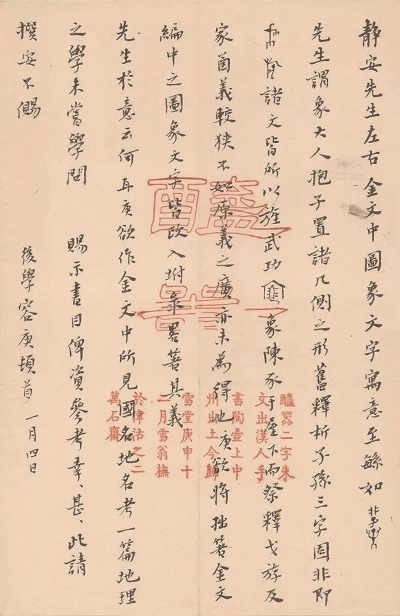 靜安先生左右金文中圖象文字寓意至緐如
先生謂象大人抱子置諸几側之形舊釋析子孫三字固非即
諸文皆所以旌武功象陳豕于屋下而祭釋戈旂及
家酋義較狹不如原義之廣亦未為得也庚欲將拙著金文
編中之圖象文字皆改入坿彔畧箸其義
先生於意云何再庚欲作金文中所見國名地名考一篇地理
之學未嘗學問 賜示書目俾資參考幸、甚、此請
撰安不賜
後學容庚頓首 一月四日
器二字朱
文出漢人手
書陶壺上中
州出土今歸
雪堂庚申十
二月雪翁橅
於津沽之二
萬石齋